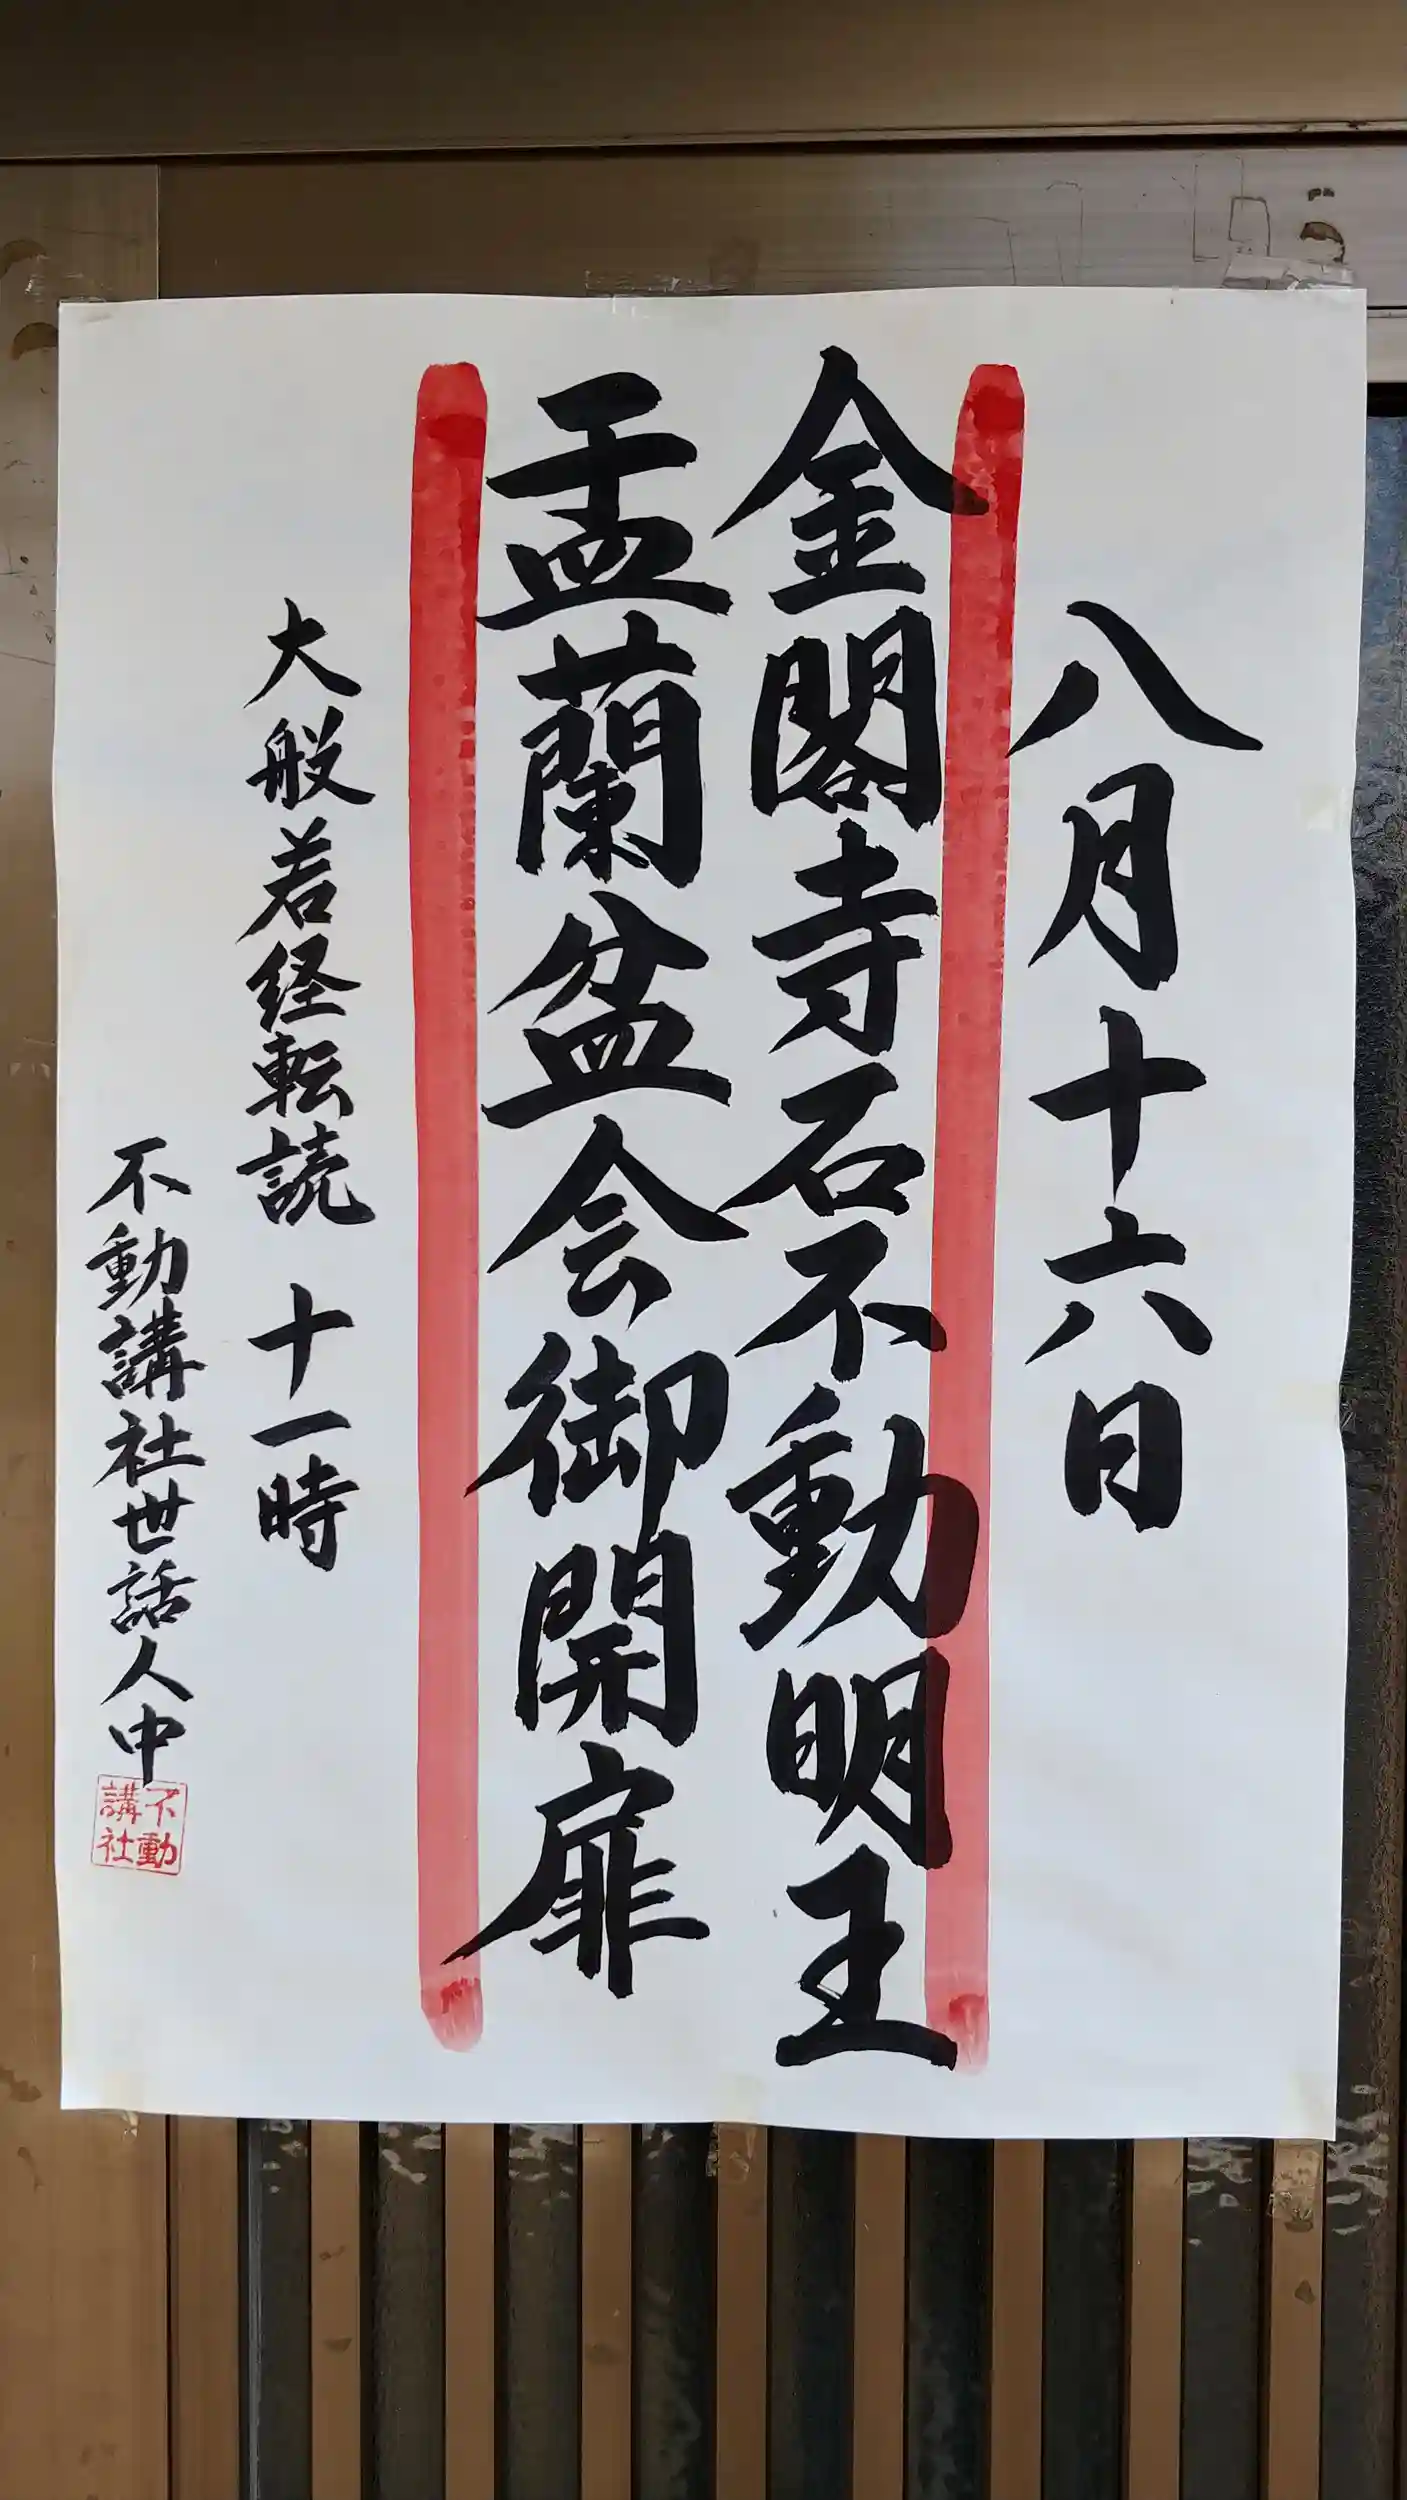 八月十六日
金閣寺石不動明王
盂蘭盆会御開扉
大般若経転読 十一時
不動講社世話人中
不動
講社